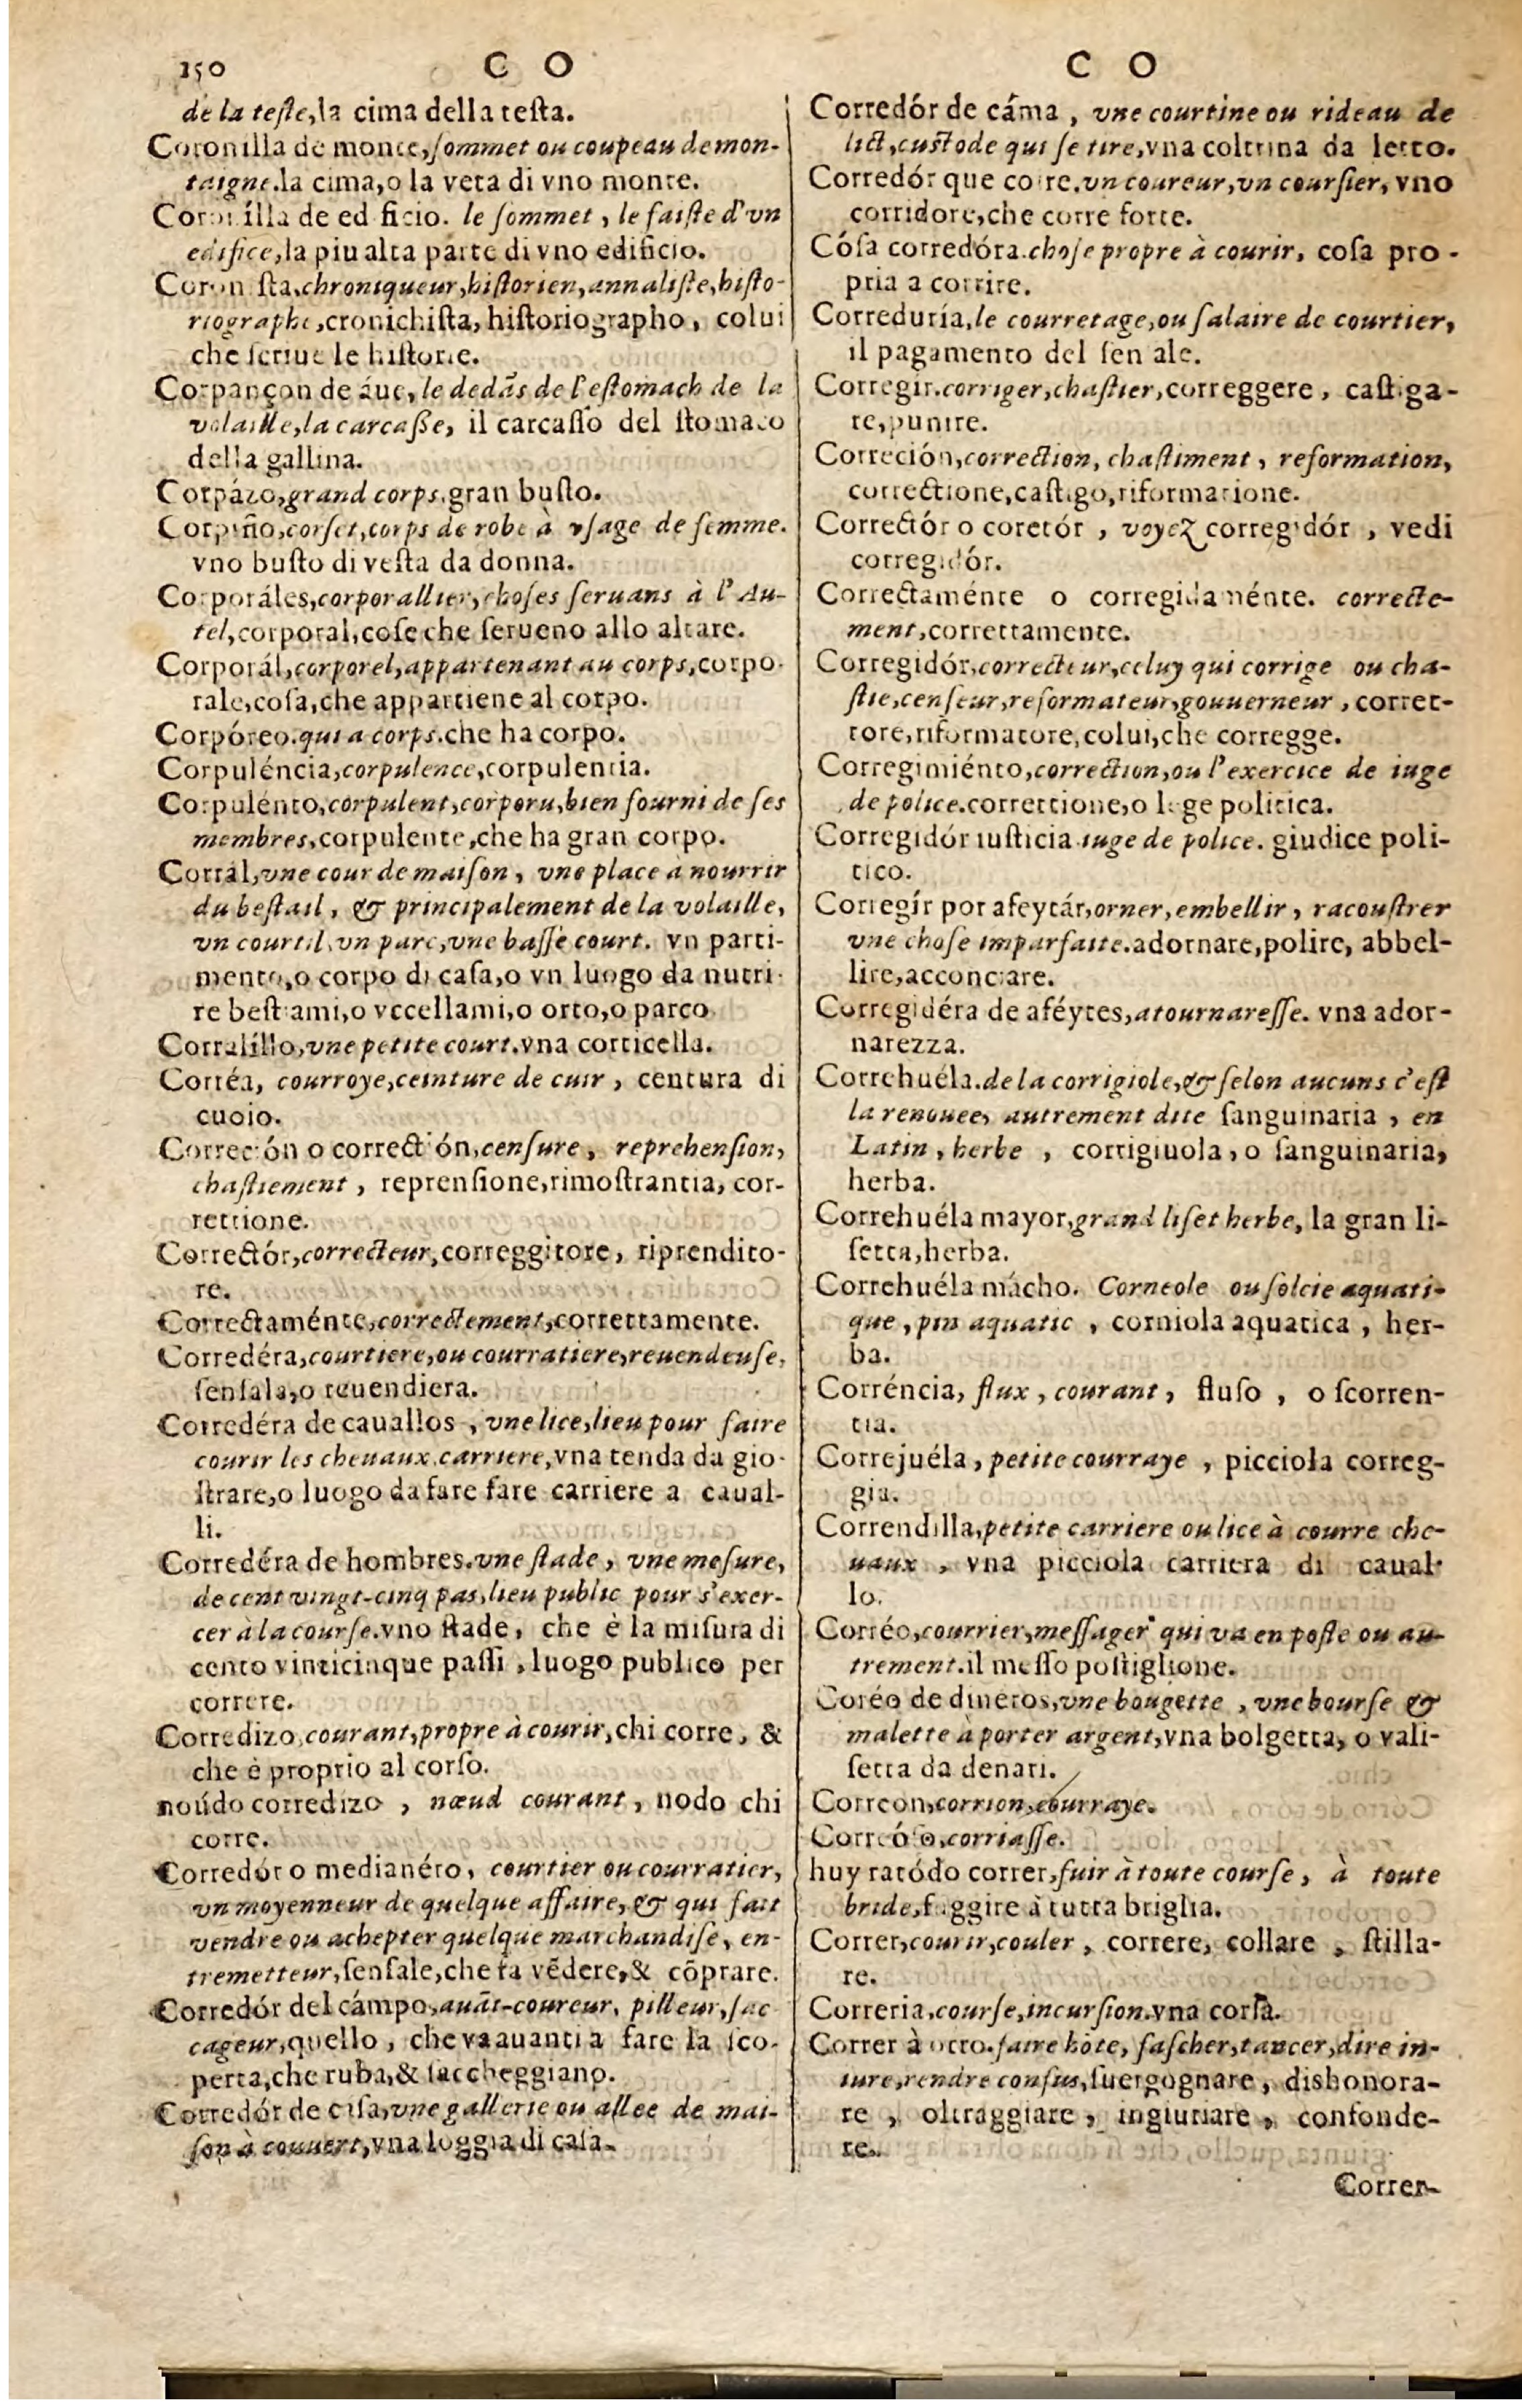 150 C O C O
de la teſte, la cima della teſta.
Coronilla de monte, ſommet ou coupeau de mon-
taigne. la cima, o la veta di vno monte.
Coronílla de edificio. le ſommet, le faiſte d'vn
edifice, la piu alta parte di vno edificio.
Coroniſta, chroniqueur, hiſtorien, annaliſte, hiſto-
riographe, cronichiſta, hiſtoriographo, colui
che ſcriue le hiſtorie.
Corpançon de áue, le dedãs de l'eſtomach de la
volaille, la carcaſſe, il carcaſſo del ſtomaco
della gallina.
Corpázo, grand corps. gran buſto.
Corpiño, corſet, corps de robe à vſage de femme.
vno buſto di veſta da donna.
Corporáles, corporallier, choſes ſeruans à l'Au-
tel, corporal, coſe che ſerueno allo altare.
Corporál, corporel, appartenant au corps, corpo-
rale, coſa, che appartiene al corpo.
Corpóreo. qui a corps. che ha corpo.
Corpuléncia, corpulence, corpulentia.
Corpulénto, corpulent, corporu, bien fourni de ſes
membres, corpulente, che ha gran corpo.
Corrál, vne cour de maiſon, vne place à nourrir
du beſtail, & principalement de la volaille,
vn courtil, vn parc, vne baſſe court. vn parti-
mento, o corpo di caſa, o vn luogo da nutri-
re beſtiami, o vccellami, o orto, o parco
Corralíllo, vne petite court. vna corticella.
Corréa, courroye, ceinture de cuir, centura di
cuoio.
Correción o correctión, cenſure, reprehenſion,
chaſtiement, reprenſione, rimoſtrantia, cor-
rettione.
Corrector, correcteur, correggitore, riprendito-
re.
Correctaménte, correctement, correttamente.
Corredéra, courtiere, ou courratiere, reuendeuſe,
ſenſala, o reuendiera.
Corredéra de cauallos, vne lice, lieu pour faire
courir les cheuaux, carriere, vna tenda da gio-
ſtrare, o luogo da fare fare carriere a caual-
li.
Corredéra de hombres. vne ſtade, vne meſure,
de cent vingt-cinq pas, lieu public pour s'exer-
cer à la courſe. vno ſtade, che è la miſura di
cento vinticinque paſſi, luogo publico per
correre.
Corredizo, courant, propre à courir, chi corre, &
che è proprio al corſo.
noúdo corredizo, nœud courant, nodo chi
corre.
Corredór o medianéro, courtier ou courratier,
vn moyenneur de quelque affaire, & qui fait
vendre ou achepter quelque marchandiſe, en-
tremetteur, ſenſale, che fa vẽdere, & cõprare.
Corredór del cámpo, auãt-coureur, pilleur, ſac
cageur, quello, che va auanti a fare la ſco-
perta, che ruba, & ſaccheggiano.
Corredór de caſa, vne gallerie ou allee de mai-
ſon à couuert, vna loggia di caſa.
Corredór de cáma, vne courtine ou rideau de
lict, cuſtode qui ſe tire, vna coltrina da letto.
Corredór que corre. vn coureur, vn courſier, vno
corridore, che corre forte.
Cóſa corredóra. choſe propre à courir, coſa pro-
pria a corrire.
Correduría, le courretage, ou ſalaire de courtier,
il pagamento del ſenſale.
Corregir. corriger, chaſtier, correggere, caſtiga-
re, punire.
Correción, correction, chaſtiment, reformation,
correctione, caſtigo, riformatione.
Corrector o coretór, voyez corregidór, vedi
corregidór.
Correctaménte o corregidaménte. correcte-
ment, correttamente.
Corregidór, correcteur, celuy qui corrige ou cha-
ſtie, cenſeur, reformateur, gouuerneur, corret-
tore, riformatore, colui, che corregge.
Corregimiénto, correction, ou l'exercice de iuge
de police. correttione, o lege politica.
Corregidór iuſticia. iuge de police. giudice poli-
tico.
Corregír por afeytár, orner, embellir, racouſtrer
vne choſe imparfaite. adornare, polire, abbel-
lire, acconciare.
Corregidéra de aféytes, atournareſſe. vna ador-
narezza.
Correhuéla. de la corrigiole, & ſelon aucuns c'eſt
la renouee, autrement dite ſanguinaria, en
Latin, herbe, corrigiuola, o ſanguinaria,
herba.
Correhuéla mayor, grand liſet herbe, la gran li-
ſetta, herba.
Correhuéla mácho. Corneole ou ſolcie aquati-
que, pin aquatic, corniola aquatica, her-
ba.
Corréncia, flux, courant, fluſo, o ſcorren-
tia.
Correjuéla, petite courraye, picciola correg-
gia.
Correndilla, petite carriere ou lice à courre che-
uaux, vna picciola carriera di caual-
lo.
Corréo, courrier, meſſager qui va en poſte ou au-
trement. il meſſo poſtiglione.
Coréo de dineros, vne bougette, vne bourſe &
malette à porter argent, vna bolgetta, o vali-
ſetta da denari.
Correon, corrion, courraye.
Correóſo, corriaſſe.
huy ratódo correr, fuir à toute courſe, à toute
bride, fuggire à tutta briglia.
Correr, courir, couler, correre, collare, ſtilla-
re.
Correria, courſe, incurſion. vna corſa.
Correr à otro. faire hôte, faſcher, tancer, dire in-
iure, rendre confus, ſuergognare, dishonora-
re, oltraggiare, ingiuriare, confonde-
re.
Correr-